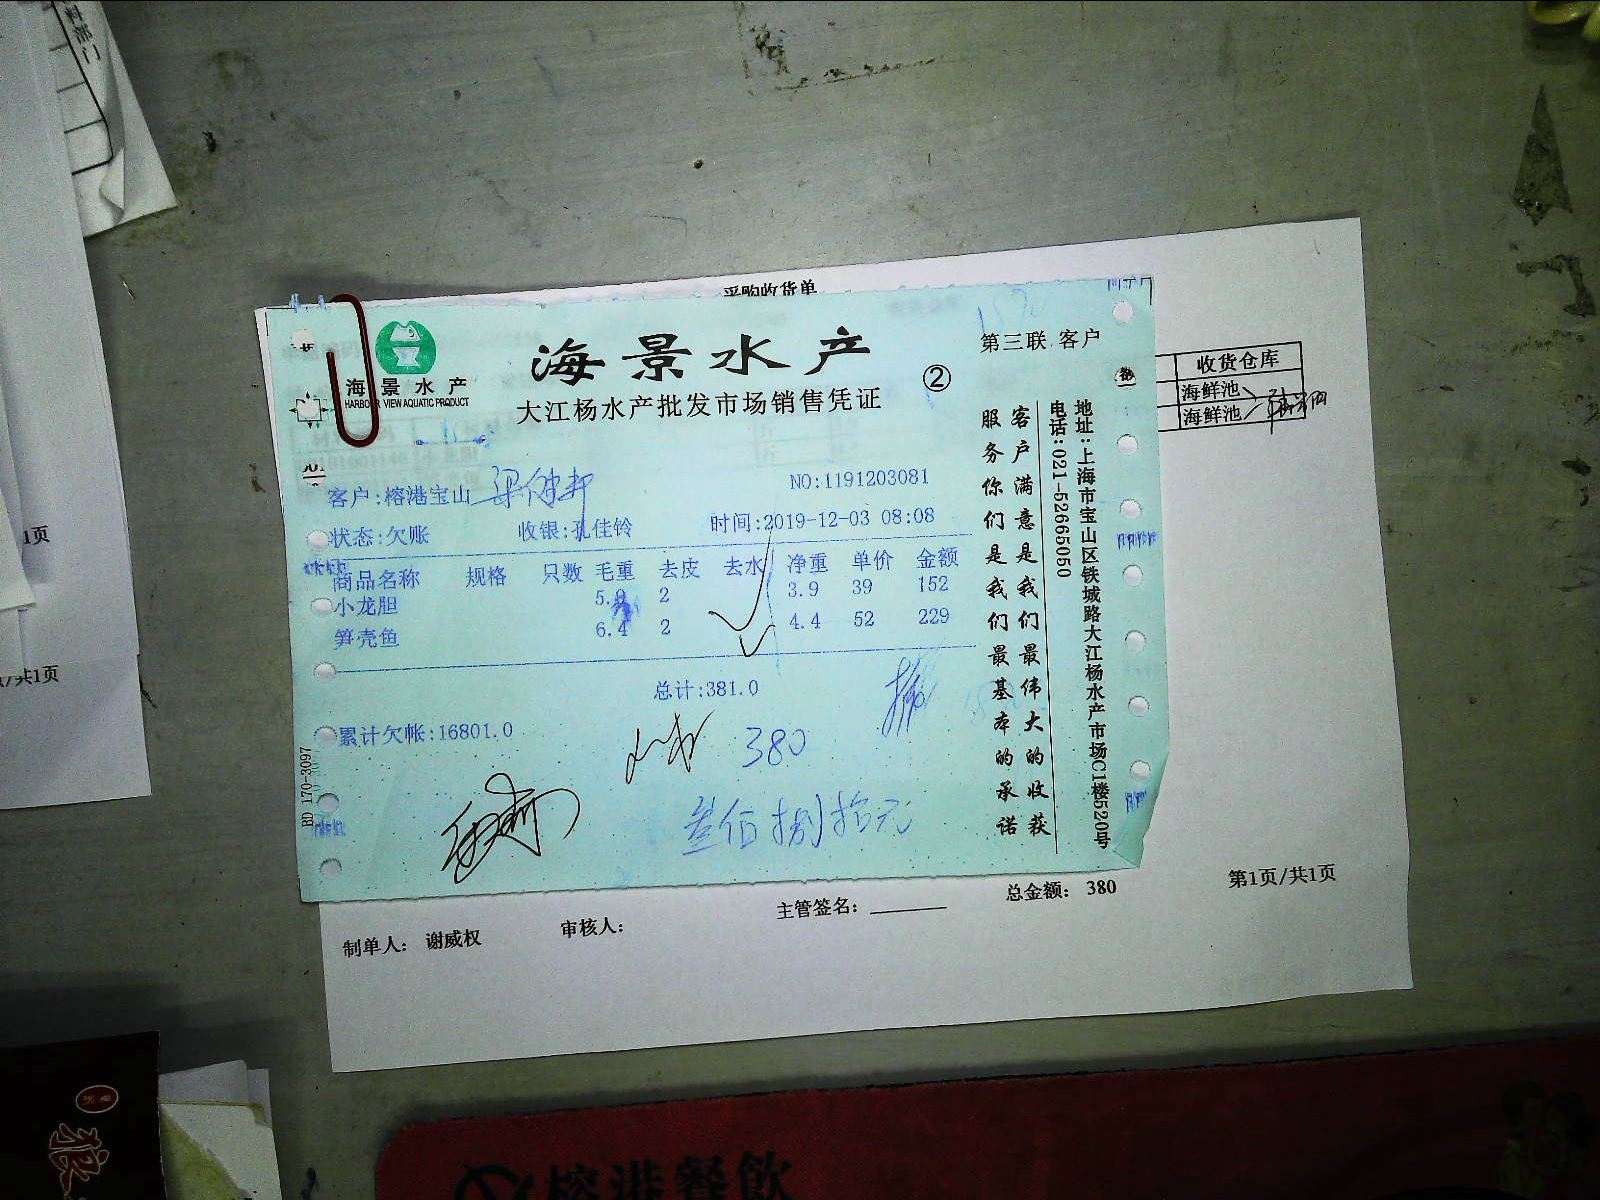 采购收货单
海景水产
HARBOUR VIEW AQUATIC PRODUCT
海景水产
大江杨水产批发市场销售凭证
②
第三联 客户
收货仓库
海鲜池
海鲜池
客户:榕港宝山
NO:1191203081
状态:欠账 收银:孔佳铃 时间:2019-12-03 08:08
商品名称 规格 只数 毛重 去皮 去水 净重 单价 金额
小龙胆 5.9 2 3.9 39 152
笋壳鱼 6.4 2 4.4 52 229
总计:381.0
累计欠帐:16801.0
380
叁佰捌拾元
客户满意是我们最伟大的收获
服务你们是我们最基本的承诺
地址:上海市宝山区铁城路大江杨水产市场C1楼520号
电话:021-52665050
BD 170-3097
制单人: 谢威权 审核人: 主管签名: 总金额: 380 第1页/共1页
1页
共1页
榕港餐飲